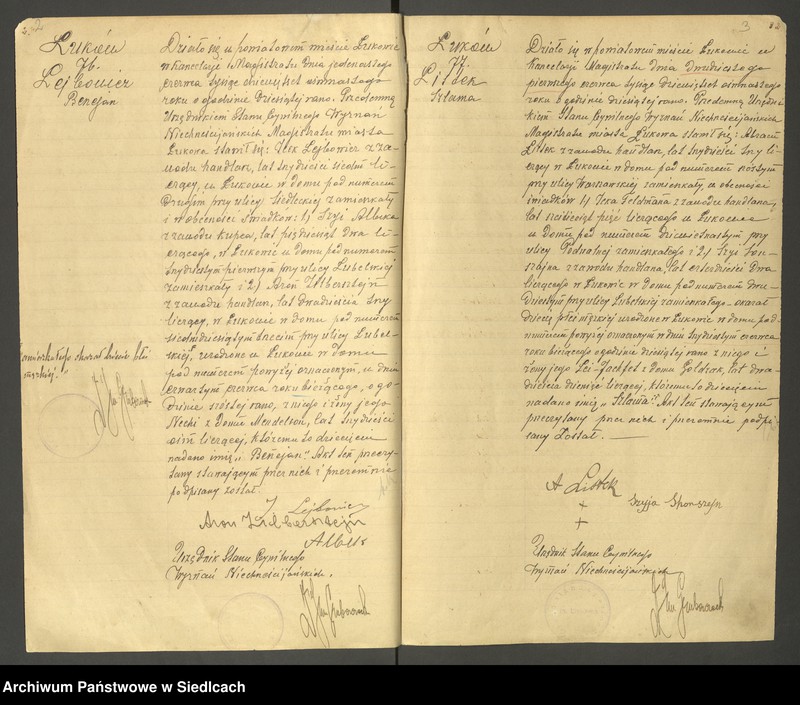 2
Łuków
76.
Lejbowicz
Benejan
Działo się w powiatowem mieście Łukowie
w Kancelarji Magistratu dnia jedenastego
czerwca tysiąc dziewięćset osiemnastego
roku o godzinie dziesiątej rano. Przedemną
Urzędnikiem Stanu Cywilnego Wyznań
Niechrześcijańskich Magistratu miasta
Łukowa stawił się: Icek Lejbowicz z za-
wodu handlarz, lat trzydzieści siedm li-
czący, w Łukowie w domu pod numerem
drugim przy ulicy Siedleckiej zamieszkały
i w obecności świadków: 1) Szyi
z zawodu kupca, lat pięćdziesiąt dwa li-
czącego, w Łukowie w domu pod numerem
trzydziestym pierwszym przy ulicy Lubelskiej
zamieszkały i 2) Aron Zylbersztejn
z zawodu handlarz, lat dwadzieścia trzy
liczący, w Łukowie w domu pod numerem
siedmdziesiątym trzecim przy ulicy Lubel-
skiej, urodzone w Łukowie w domu
pod numerem powyżej oznaczonym, w dniu
czwartym czerwca roku bieżącego, o go-
dzinie szóstej rano, z niego i żony jego
Nechi z domu Mendelson, lat trzydzieści
ośm liczącej, któremu to dziecięciu
nadano imię „Benejan". Akt ten przeczy-
tany stawającym przez nich i przezemnie
podpisany został.
I Lejbowicz
Aron Zilbersztejn
Urzędnik Stanu Cywilnego
Wyznań Niechrześcijańskich.
3
Łuków
77.
Listek
Szlama
Działo się w powiatowem mieście Łukowie w
Kancelarji Magistratu dnia dwudziestego
pierwszego czerwca tysiąc dziewięćset osiemnastego
roku o godzinie dziesiątej rano. Przedemną Urzędni-
kiem Stanu Cywilnego Wyznań Niechrześcijańskich
Magistratu miasta Łukowa stawił się: Abram
Listek z zawodu handlarz, lat trzydzieści trzy li-
czący w Łukowie w domu pod numerem szóstym
przy ulicy Warszawskiej zamieszkały, w obecności
świadków 1) Icka Goldmana z zawodu handlarza,
lat sześćdziesiąt pięć liczącego w Łukowie
w domu pod numerem dziewiętnastym przy
ulicy zamieszkałego i 2) Szyi
z zawodu handlarza, lat czterdzieści dwa
liczącego w Łukowie w domu pod numerem dwu-
dziestym przy ulicy Lubelskiej zamieszkałego – okazał
dziecię płci męzkiej urodzone w Łukowie w domu pod
numerem powyżej oznaczonym w dniu trzydziestym czerwca
roku bieżącego o godzinie dziesiątej rano z niego i
żony jego z domu lat dwa-
dzieścia dziewięć liczącej, któremu to dziecięciu
nadano imię „Szlama". Akt ten stawającym
przeczytany przez nich i przezemnie podpi-
sany został.
A Listek
Szyja
Urzędnik Stanu Cywilnego
Wyznań Niechrześcijańskich
Archiwum Państwowe w Siedlcach